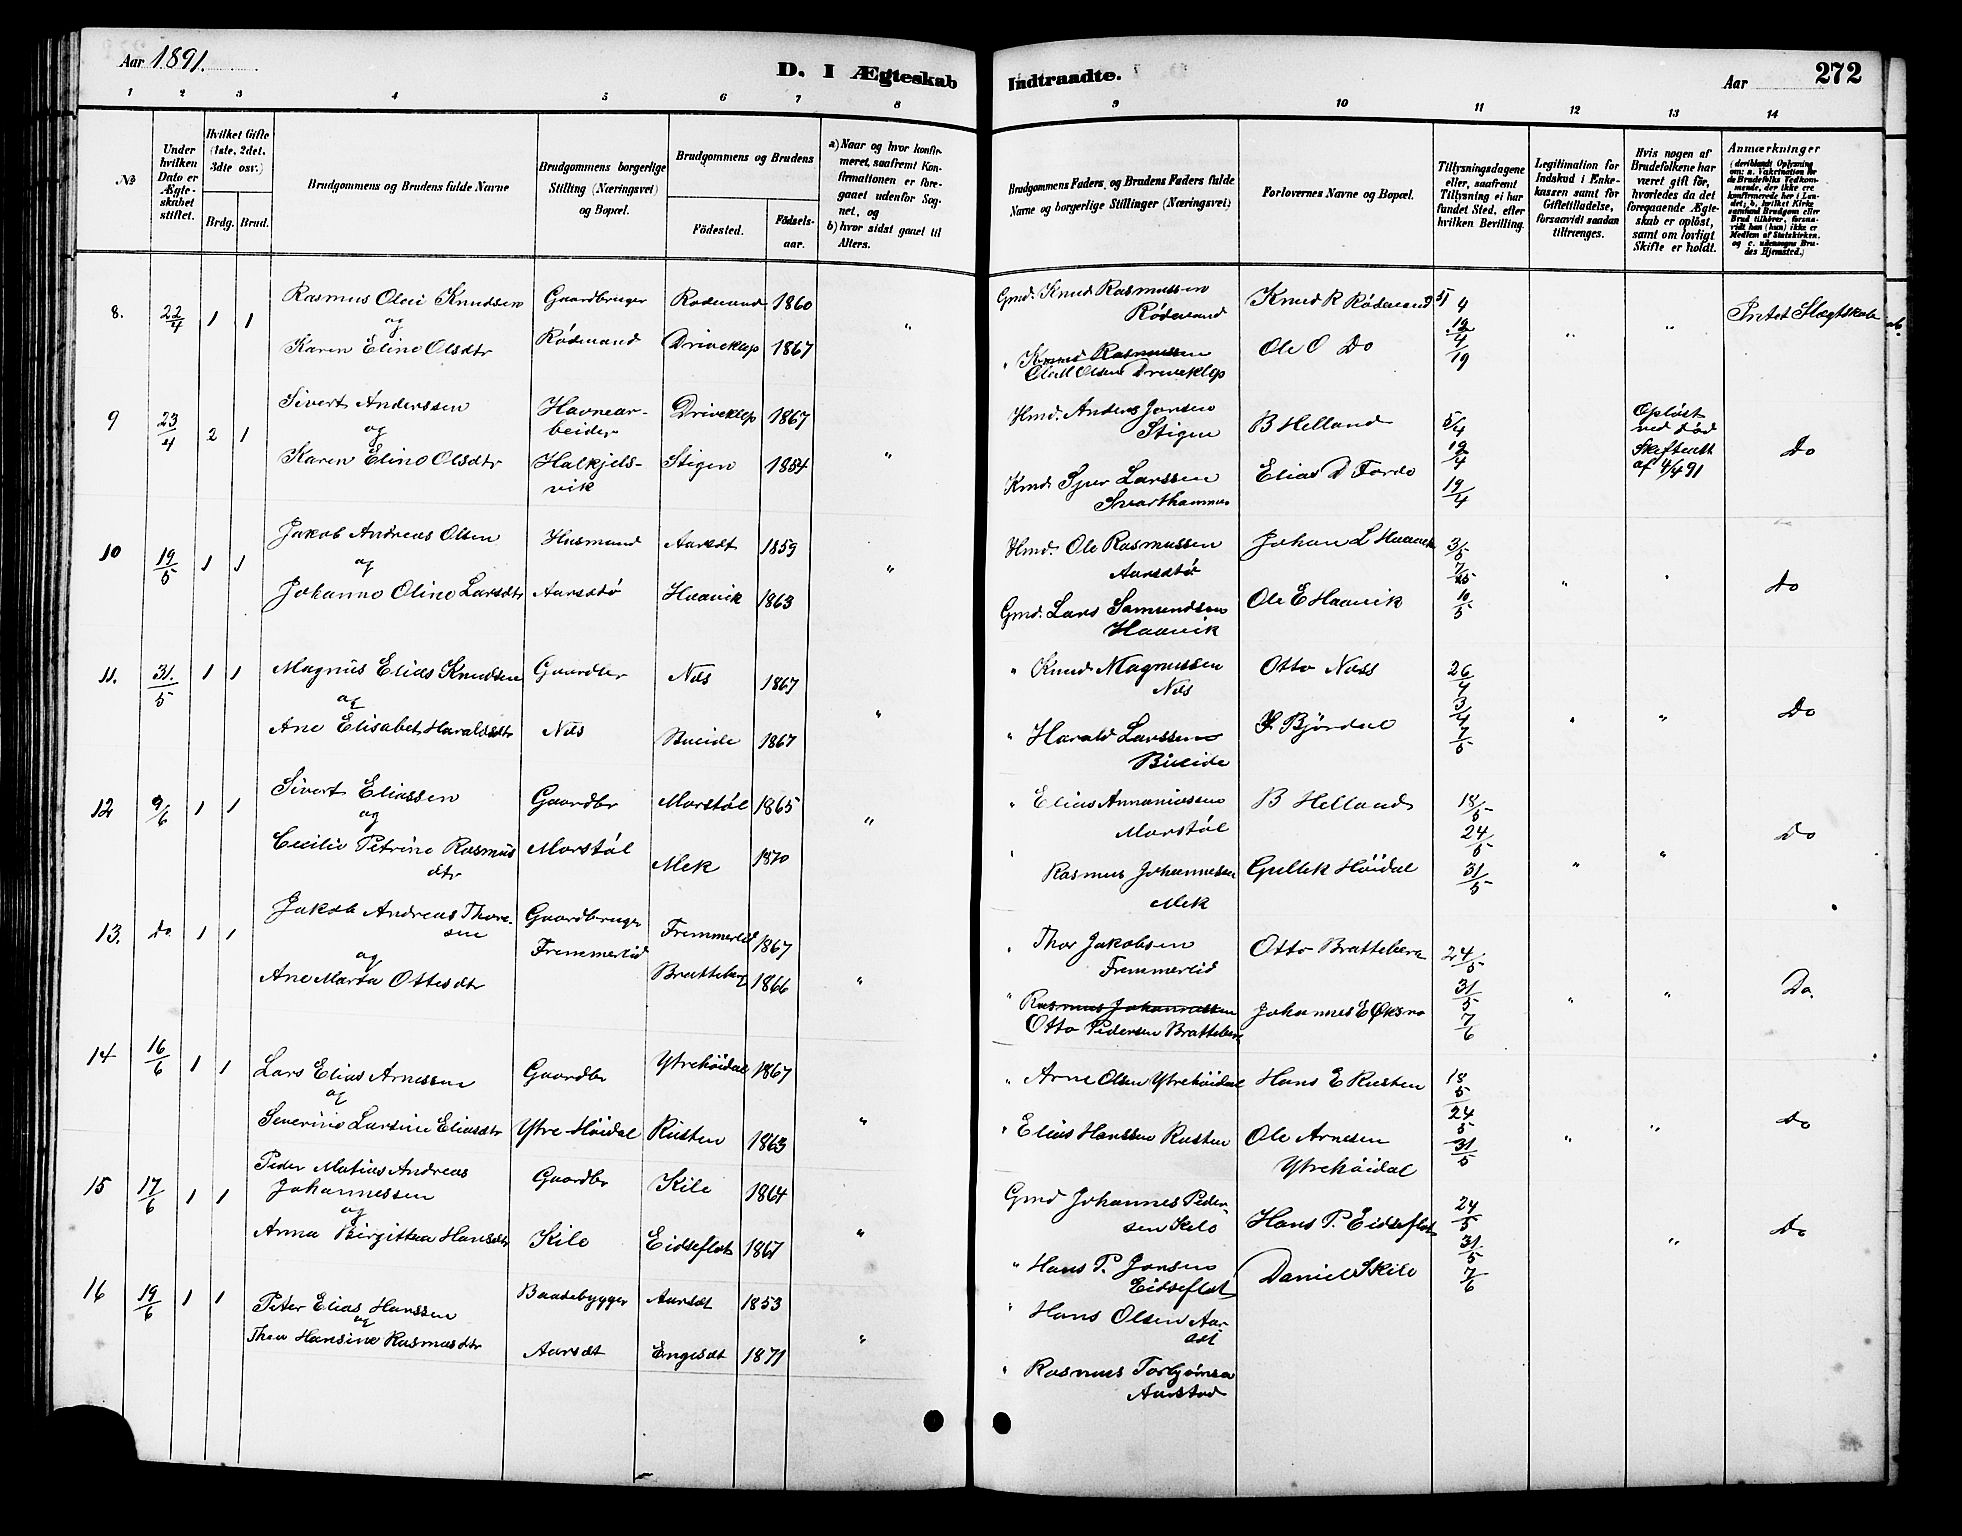 Aar 1891.
D. I Ægteskab
Indtraadte.
Aar
272
1 2 3 4 5 6 7 8
9 10 11 12 13 14
No
Under hvilken Dato er Ægteskabet stiftet.
Hvilket Gifte (1ste, 2det, 3dte osv.)
Brdg. Brud.
Brudgommens og Brudens fulde Navne
Brudgommens borgerlige Stilling (Næringsvei) og Bopæl.
Brudgommens og Brudens
Födested.
Födsels-aar.
a) Naar og hvor konfirmeret, saafremt Konfirmationen er foregaaet udenfor Sognet, og
b) hvor sidst gaaet til Alters.
Brudgommens Faders, og Brudens Faders fulde Navne og borgerlige Stillinger (Næringsvei)
Forlovernes Navne og Bopæl.
Tillysningsdagene eller, saafremt Tillysning ei har fundet Sted, efter hvilken Bevilling.
Legitimation for Indskud i Enkekassen samt for Giftetilladelse, forsaavidt saadan tiltrænges.
Hvis nogen af Brudefolkene har været gift för, hvorledes da det foregaaende Ægteskab er oplöst, samt om lovligt Skifte er holdt.
Anmærkninger
8. 22/4 1 1 Rasmus Olai Knudsen Gaardbruger Rødesand 1860 Gmd. Knud Rasmussen Knud R Rødesand 5/4
og Rødesand
Karen Eline Olsdtr Rødesand Driveklep 1867 " Knud Rasmussen Ole O Do 12/4 19 " " Intet Slægtskab
Olsen Driveklep
9 23/4 2 1 Sivert Anderssen Havnear- Driveklep 1867 Hmd. Anders Jonsen B Helland 5/4 Opløst
og beider Stigen ved Død
Karen Eline Olsdtr Halkjels- Stigen 1854 " Kmd. Sjur Larssen Elias D Førde 12/4 19/4 Skifteatt Do
vik Svarthammer af 4/4 91
10 19/5 1 1 Jakob Andreas Olsen Husmand Aarsdt 1859 Hmd. Ole Rasmussen Johan L Haavik 3/5
og " Aarsdtø 7/5
Johanne Oline Larsdtr Aarsdtø Haavik 1863 Gmd. Lars Samundsen Ole E Haavik 10/5 " " Do
Haavik
11. 31./5 1 1 Magnus Elias Knudsen Gaardbr Næs 1867 " Knud Magnussen Otto Næss 26/4
og " Næs 3/4
Ane Elisabet Haraldsdtr Næs Bueide 1867 " Harald Larssen Bjørdal 7/5 " " Do
Bueide
12 9/6 1 1 Sivert Eliassen Gaardbr Morstøl 1865 " Elias Annaniassen B Helland 18/5
og " Morstøl 24/5 Do
Cecilie Petrine Rasmus Morstøl Mek 1870 " Rasmus Johannesen Gullek Höidal 31/5 " "
dtr Mek
13. Do. 1 1 Jakob Andreas Thore- Gaardbruger Fremmerlid 1867 " Thor Jakobsen Otto Bratteberg 24/5
sen Fremmerlid Fremmerlid
og
Ane Marta Ottesdtr Bratteberg 1866 " " Rasmus Johannessen Johannes E Øksno 31/5 7/6 " " Do.
Otto Pedersen Bratteberg
14 16/6 1 1 Lars Elias Arnessen Gaardbr Ytrehöidal 1867 " Arne Olsen Ytrehöidal Hans E Rusten 18/5
og 24/5
Severine Larsine Eliasdtr Ytre Höidal Rusten 1863 " " Elias Hanssen Rusten Ole Arnesen 31/5 " " Do
Ytrehöidal
15 17/6 1 1 Peder Matias Andreas Gaardbr Kile 1864 Gmd Johannes Peder- 24/5
Johannessen sen Kile Hans P. Eidseflot
og
Anna Birgittea Hansdtr Kile Eidseflot 1867 " " Hans P. Jonsen Daniel S Kile 31/5 7/6 " Do
Eidseflot
16 19/6 1 1 Peter Elias Hanssen Baadebygger Aarsdt 1853 " Hans Olsen Aar-
og sdt
Thea Hansine Rasmusdtr Aarsdt Engesdt 1871 " " Rasmus Torbjørnsa
Aarstad